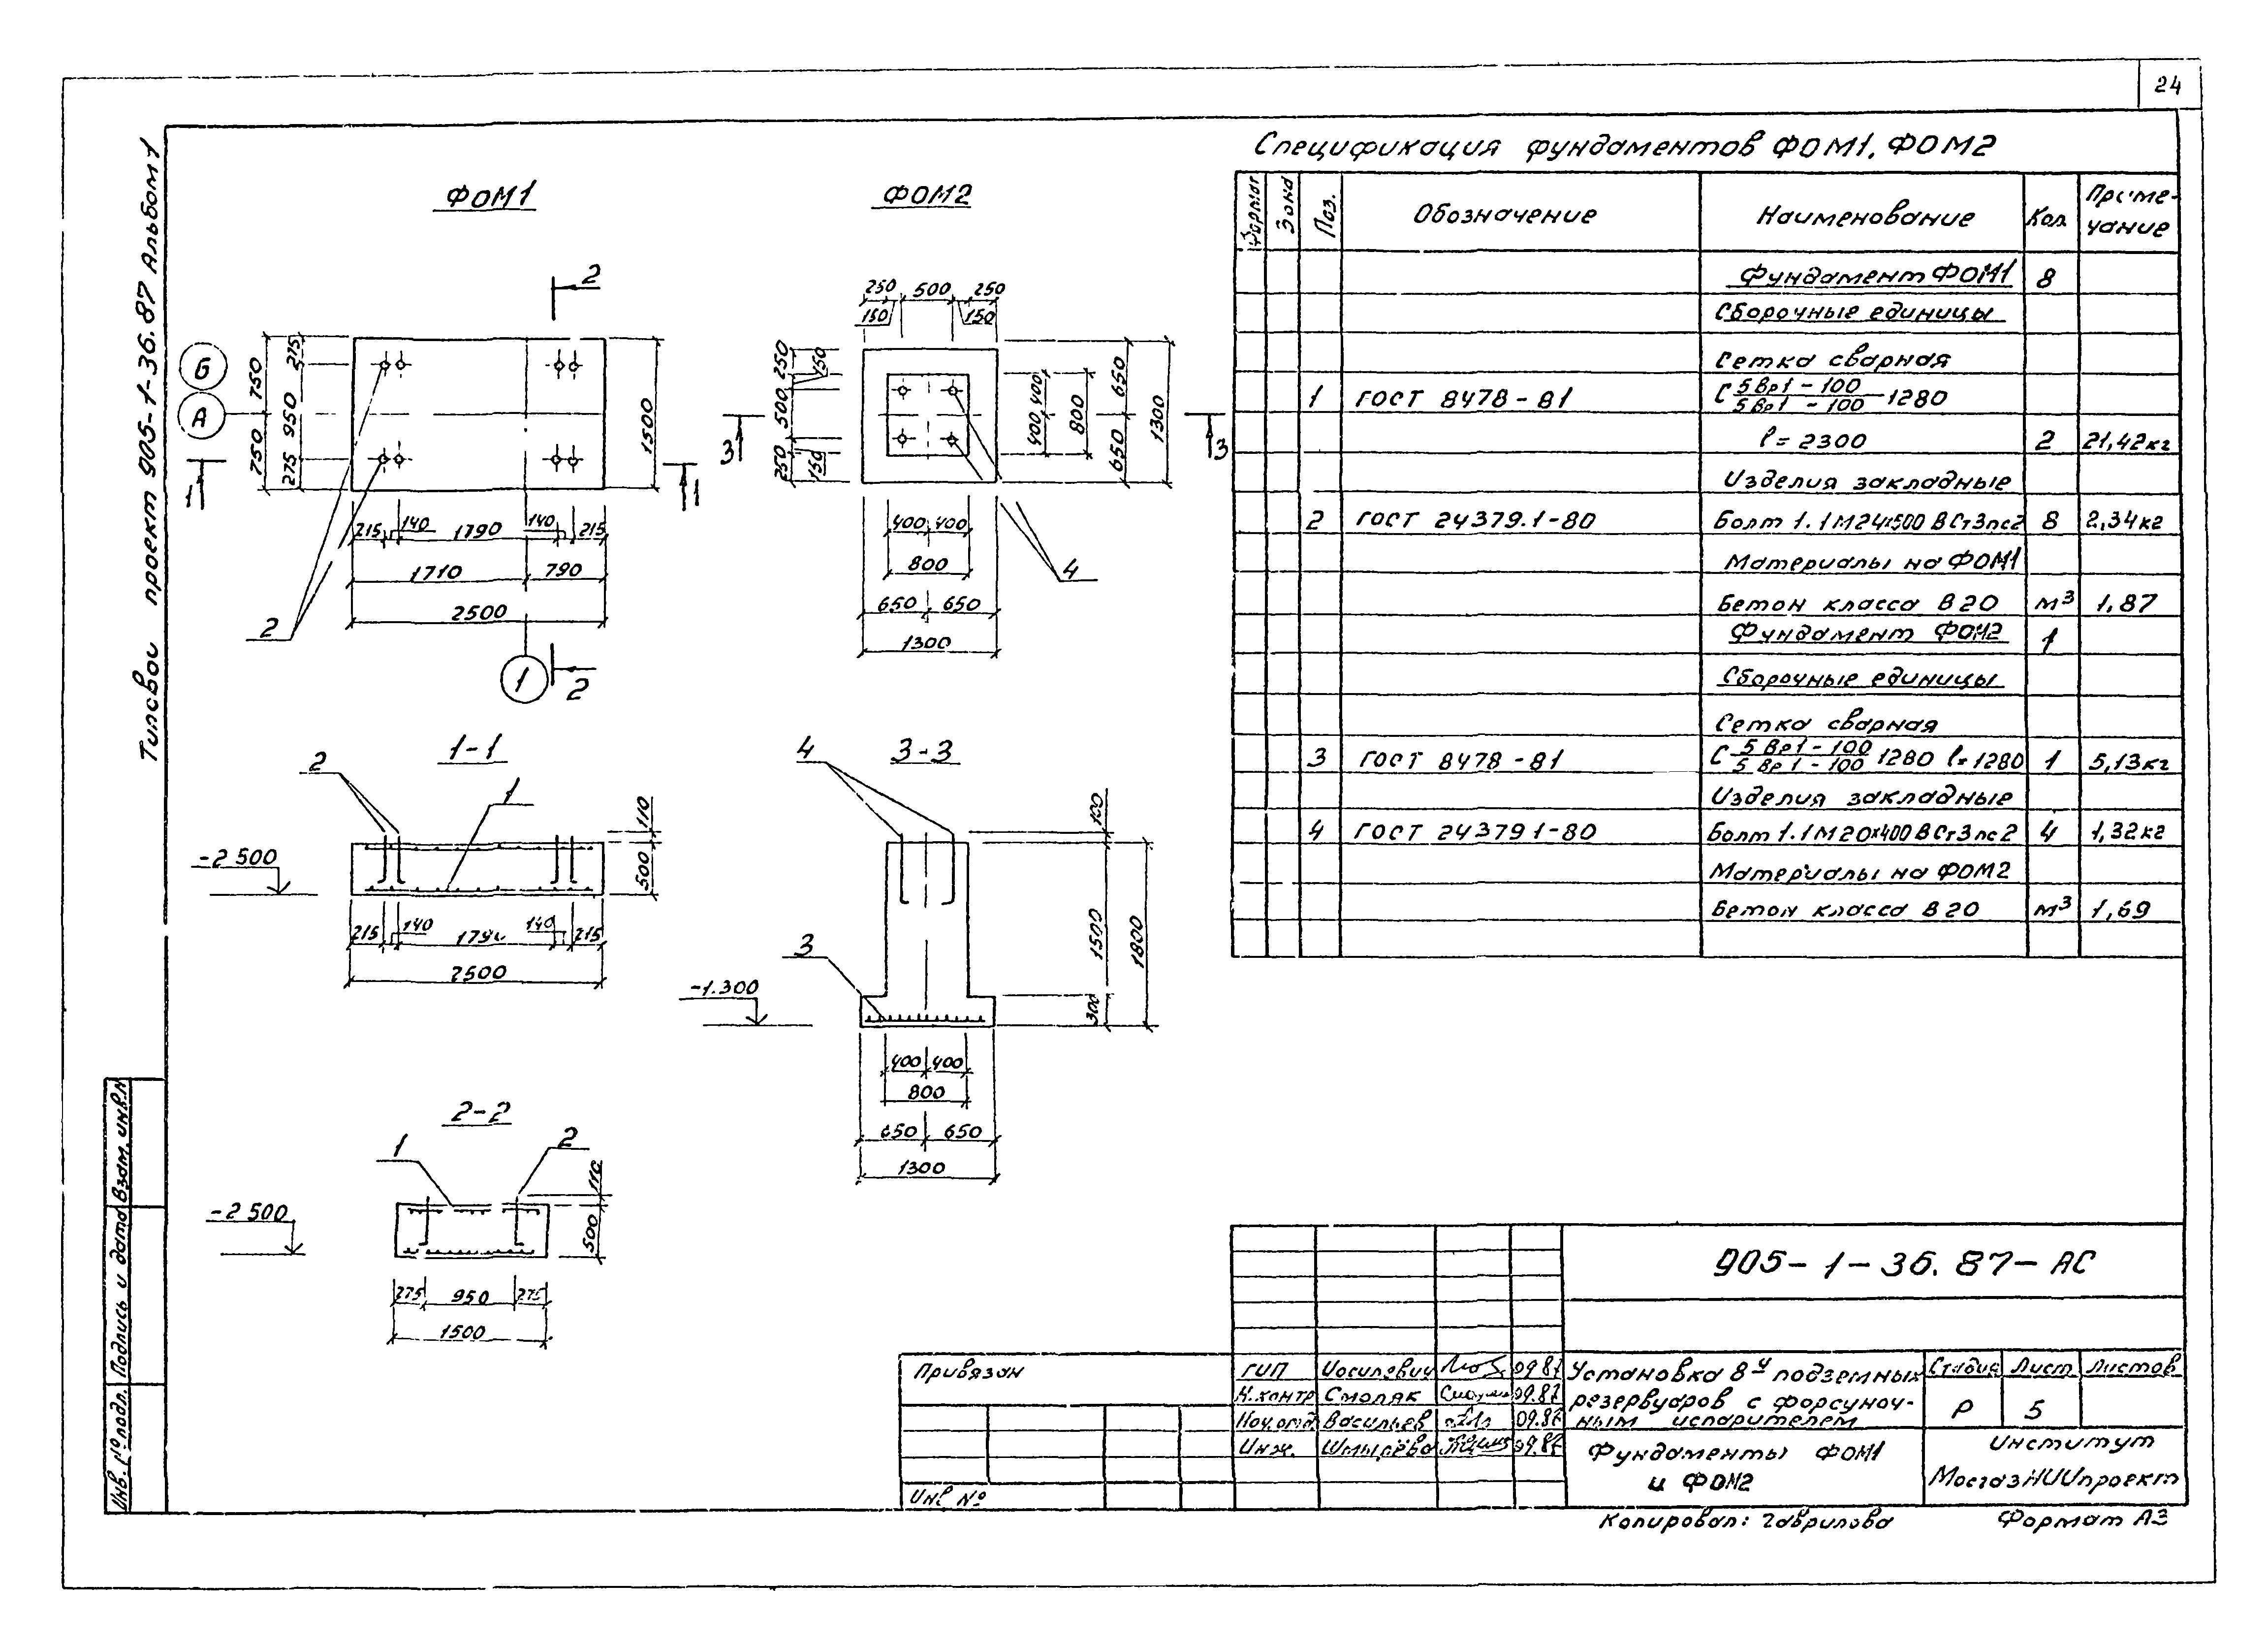 24
Типовой проект 905-1-36.87 Альбом 1
ФОМ1
2
Б
А
750
750
275
950
275
1500
1
1
215
140
1790
140
215
1710
790
2500
2
1
2
ФОМ2
250
500
250
150
150
250
500
250
150
150
400
400
800
650
650
1300
3
3
400
400
800
650
650
1300
4
1-1
2
1
110
500
-2 500
215
140
140
215
2500
3-3
4
3
100
1500
300
1800
-1.300
400
400
800
650
650
1300
2-2
1
2
110
500
-2 500
275
950
275
1500
Спецификация фундаментов ФОМ1, ФОМ2
Формат Зона Поз. Обозначение Наименование Кол. Приме-
чание
Фундамент ФОМ1 8
Сборочные единицы
Сетка сварная
1 ГОСТ 8478-81 С 5Вр1-100 / 5Вр1-100 1280
l=2300 2 21,42кг
Изделия закладные
2 ГОСТ 24379.1-80 Болт 1.1М24х500 ВСт3пс2 8 2,34кг
Материалы на ФОМ1
Бетон класса В20 м³ 1,87
Фундамент ФОМ2 1
Сборочные единицы
Сетка сварная
3 ГОСТ 8478-81 С 5Вр1-100 / 5Вр1-100 1280 l=1280 1 5,13кг
Изделия закладные
4 ГОСТ 24379 1-80 Болт 1.1М20х400 ВСт3пс2 4 1,32кг
Материалы на ФОМ2
Бетон класса В20 м³ 1,69
905-1-36.87-АС
Привязан
Инв №
ГИП Иосилевич 09.87
Н.контр Смоляк 09.87
Нач.отд. Васильев 09.87
Инж. Шмырёва 09.87
Установка 8и подземных
резервуаров с форсуноч-
ным испарителем
Стадия Лист Листов
Р 5
Фундаменты ФОМ1
и ФОМ2
Институт
МосгазНИИпроект
Копировал: Гаврилова Формат А3
Инв. № подл. Подпись и дата Взам. инв.N